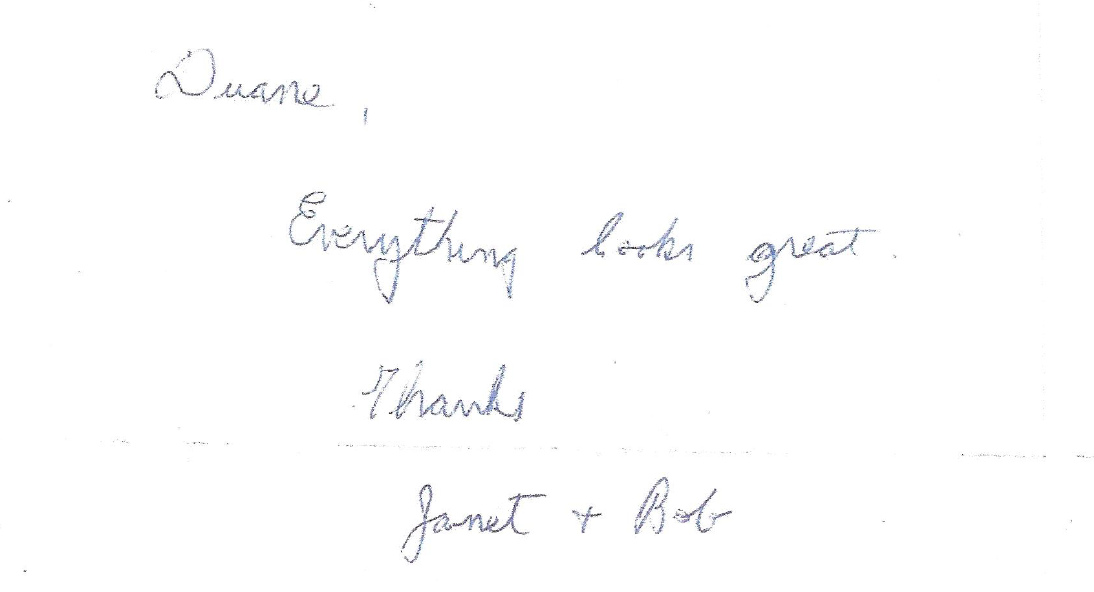 Duane,
Everything looks great.
Thanks
Janet + Bob